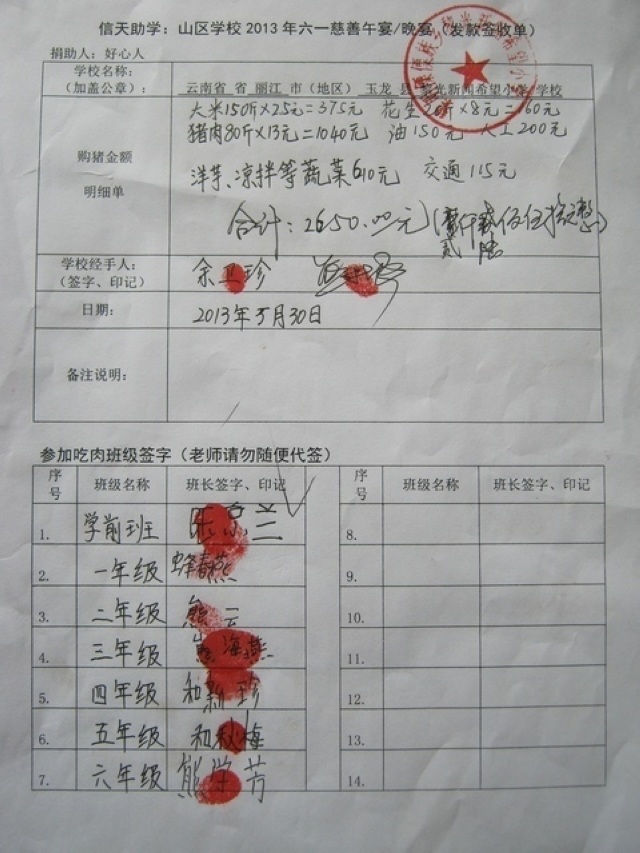 信天助学：山区学校 2013 年六一慈善午宴/晚宴（发款签收单）
捐助人：好心人
学校名称：
（加盖公章）：
云南省 省 丽江 市（地区） 玉龙 县 黎光新闻希望小学 学校
购猪金额
明细单
大米150斤×25元=375元 花生20斤×8元=160元
猪肉80斤×13元=1040元 油150元 人工200元
洋芋、凉拌等蔬菜610元 交通115元
合计：2650.00元
学校经手人：
（签字、印记）
余卫珍
日期：
2013年5月30日
备注说明：
参加吃肉班级签字（老师请勿随便代签）
序号 班级名称 班长签字、印记 序号 班级名称 班长签字、印记
1. 学前班 8.
2. 一年级 蜂春燕 9.
3. 二年级 熊云 10.
4. 三年级 海燕 11.
5. 四年级 和新珍 12.
6. 五年级 和秋梅 13.
7. 六年级 熊学芳 14.